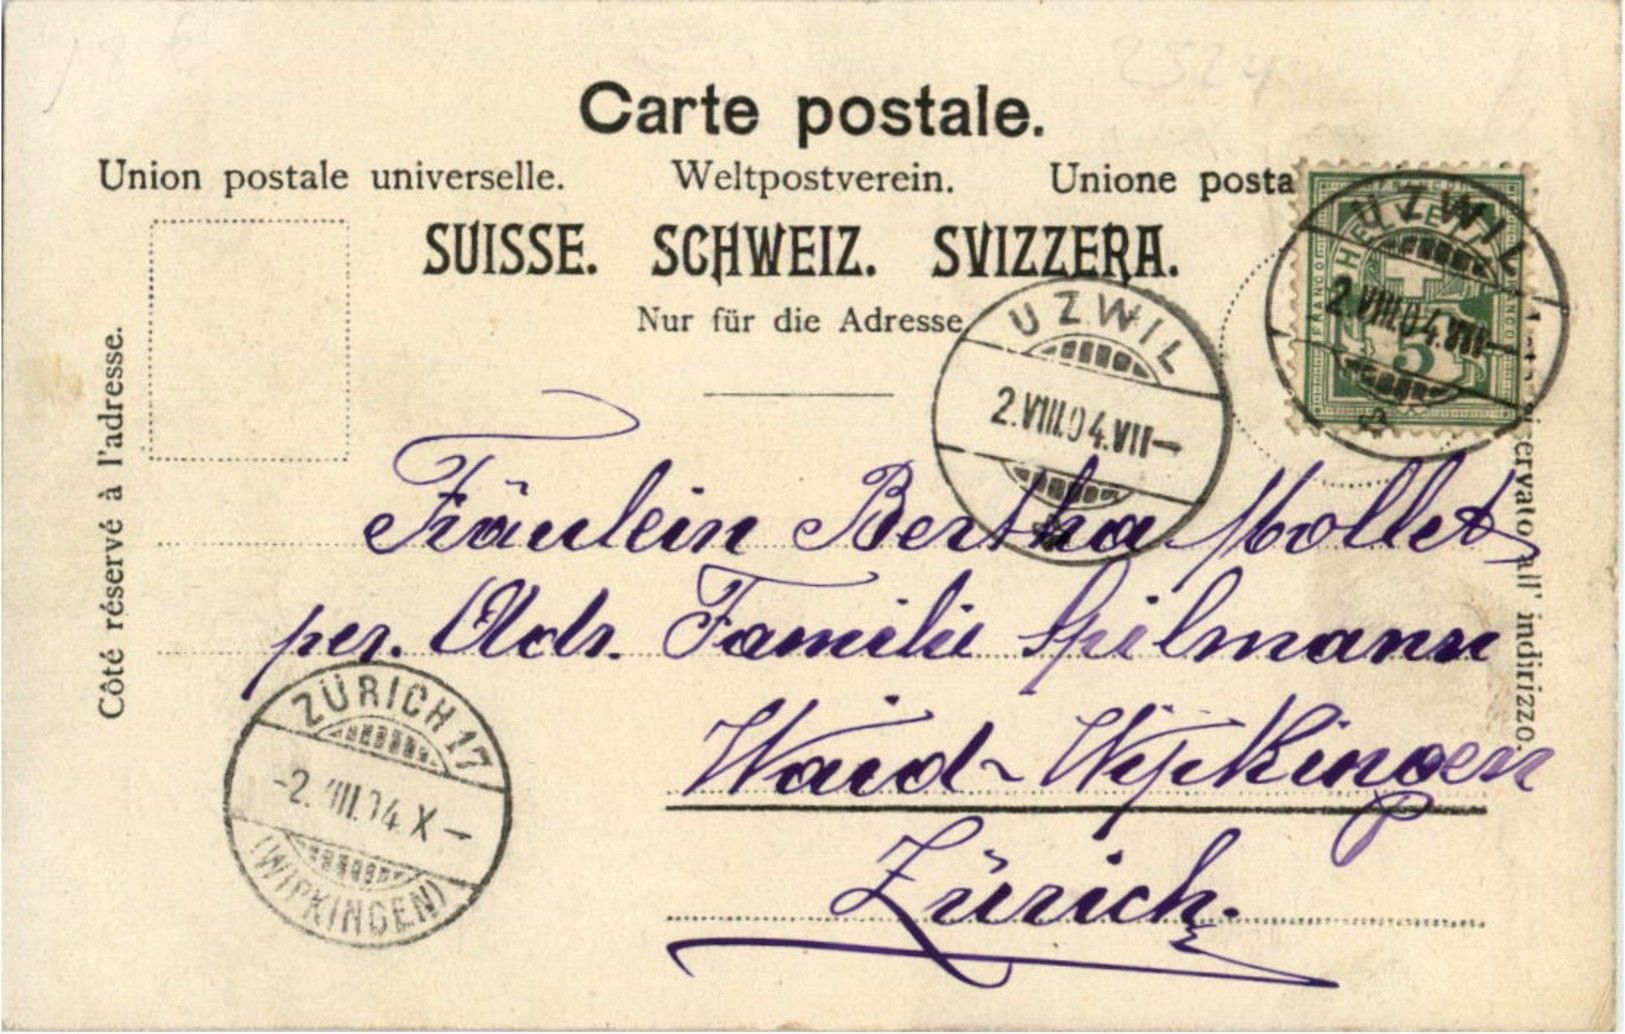 2524
Carte postale.
Union postale universelle. Weltpostverein. Unione posta
SUISSE. SCHWEIZ. SVIZZERA.
Nur für die Adresse
Côté réservé à l'adresse.
ervato all' indirizzo.
HELVE
FRANCO
5
UZWIL
2.VIII.04.VII—
UZWIL
2.VIII.04.VII—
Fräulein Bertha Mollet
per. Adr. Familie Spilmann
Waid-Wipkingen
Zürich.
ZÜRICH 17
-2.VIII.04.X—
(WIPKINGEN)